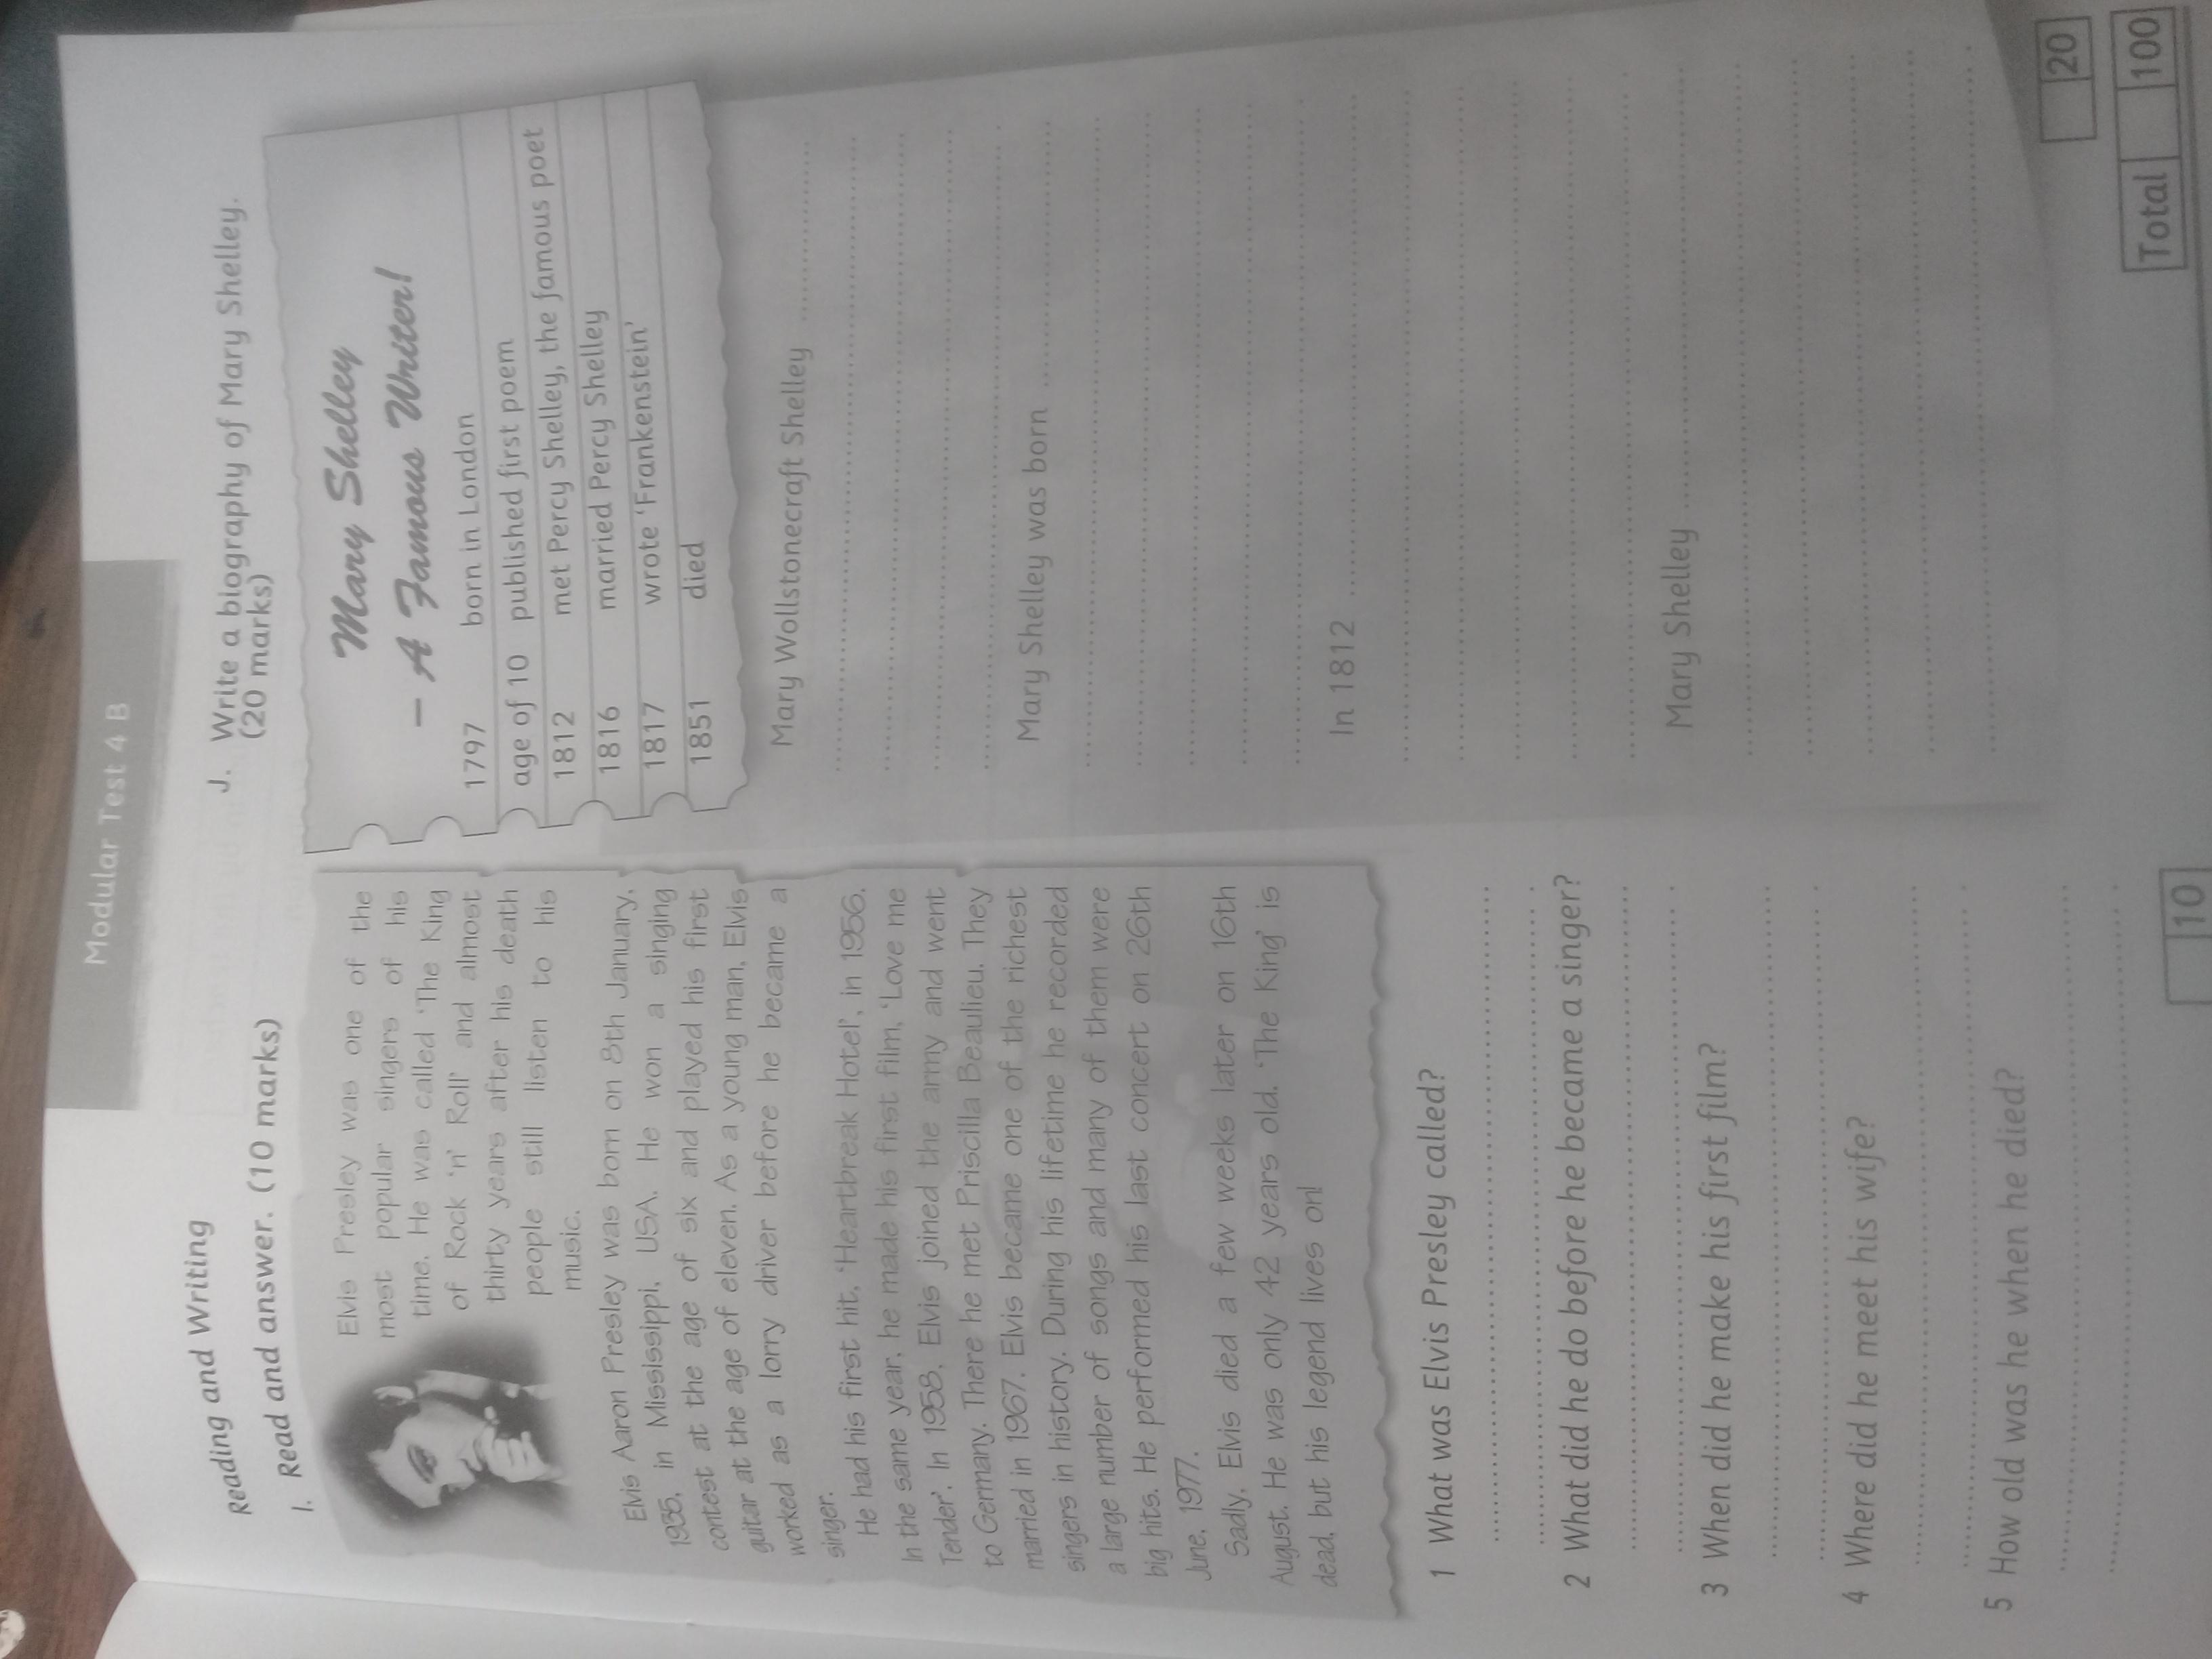 Modular Test 4 B
Reading and Writing
I. Read and answer. (10 marks)
Elvis Presley was one of the
most popular singers of his
time. He was called 'The King
of Rock 'n' Roll' and almost
thirty years after his death
people still listen to his
music.
Elvis Aaron Presley was born on 8th January,
1935, in Mississippi, USA. He won a singing
contest at the age of six and played his first
guitar at the age of eleven. As a young man, Elvis
worked as a lorry driver before he became a
singer.
He had his first hit, 'Heartbreak Hotel', in 1956.
In the same year, he made his first film, 'Love me
Tender'. In 1958, Elvis joined the army and went
to Germany. There he met Priscilla Beaulieu. They
married in 1967. Elvis became one of the richest
singers in history. During his lifetime he recorded
a large number of songs and many of them were
big hits. He performed his last concert on 26th
June, 1977.
Sadly, Elvis died a few weeks later on 16th
August. He was only 42 years old. 'The King' is
dead, but his legend lives on!
1 What was Elvis Presley called?
2 What did he do before he became a singer?
3 When did he make his first film?
4 Where did he meet his wife?
5 How old was he when he died?
10
J. Write a biography of Mary Shelley.
(20 marks)
Mary Shelley
– A Famous Writer!
1797 born in London
age of 10 published first poem
1812 met Percy Shelley, the famous poet
1816 married Percy Shelley
1817 wrote 'Frankenstein'
1851 died
Mary Wollstonecraft Shelley
Mary Shelley was born
In 1812
Mary Shelley
20
Total 100